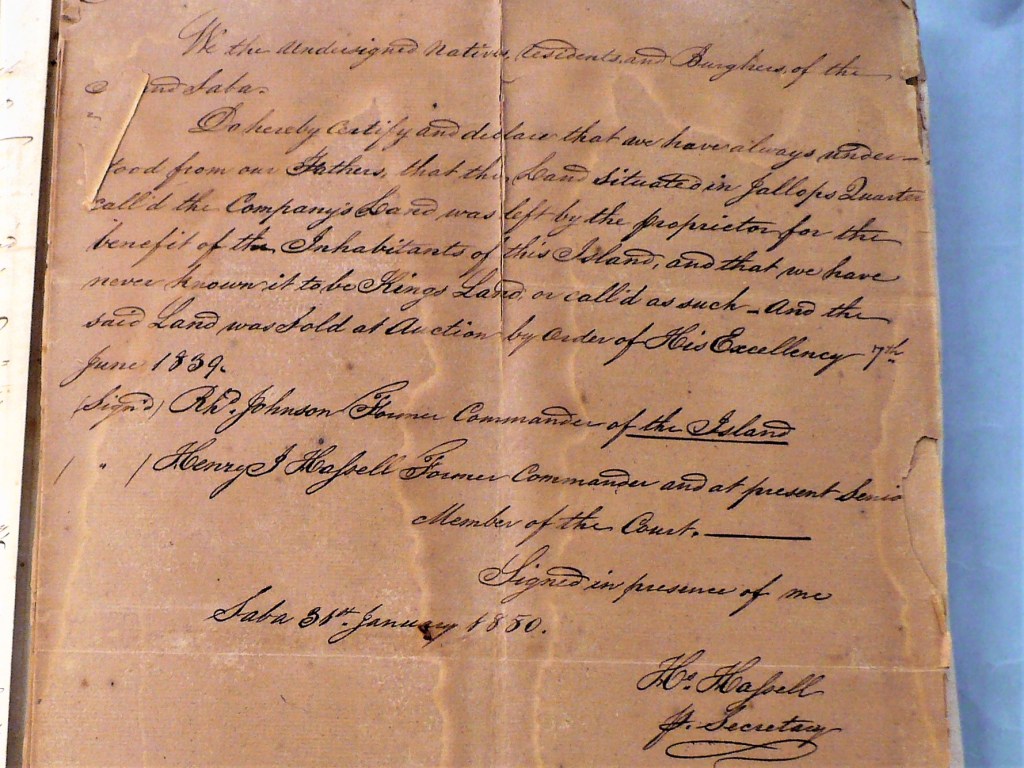 We the Undersigned Natives, Residents, and Burghers, of the
nd Saba.
Do hereby Certify and declare that we have always under-
tood from our Fathers, that the Land Situated in Jallops Quarter
call'd the Company's Land was left by the proprietor for the
benefit of the Inhabitants of this Island, and that we have
never known it to be Kings Land, or call'd as such - And the
said Land was Sold at Auction by order of His Excellency 7th
June 1839.
(Sign'd) Rhd. Johnson Former Commander of the Island
( " ) Henry J Hassell Former Commander and at present Senio
Member of the Court.
Signed in presence of me
Saba 31st January 1850.
Hs Hassell
Secretary